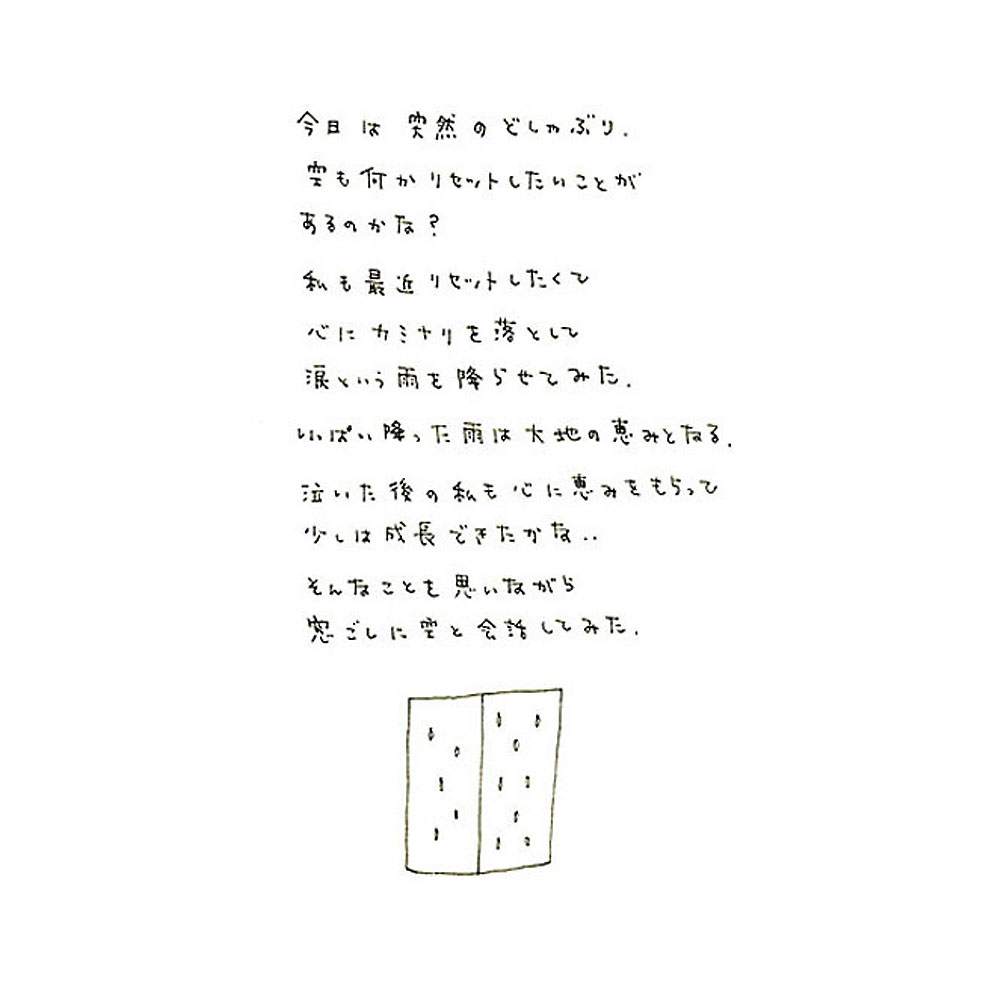 今日は突然のどしゃぶり.
空も何かリセットしたいことが
あるのかな?
私も最近リセットしたくて
心にカミナリを落として
涙という雨を降らせてみた.
いっぱい降った雨は大地の恵みとなる.
泣いた後の私も心に恵みをもらって
少しは成長できたかな..
そんなことを思いながら
窓ごしに空と会話してみた.